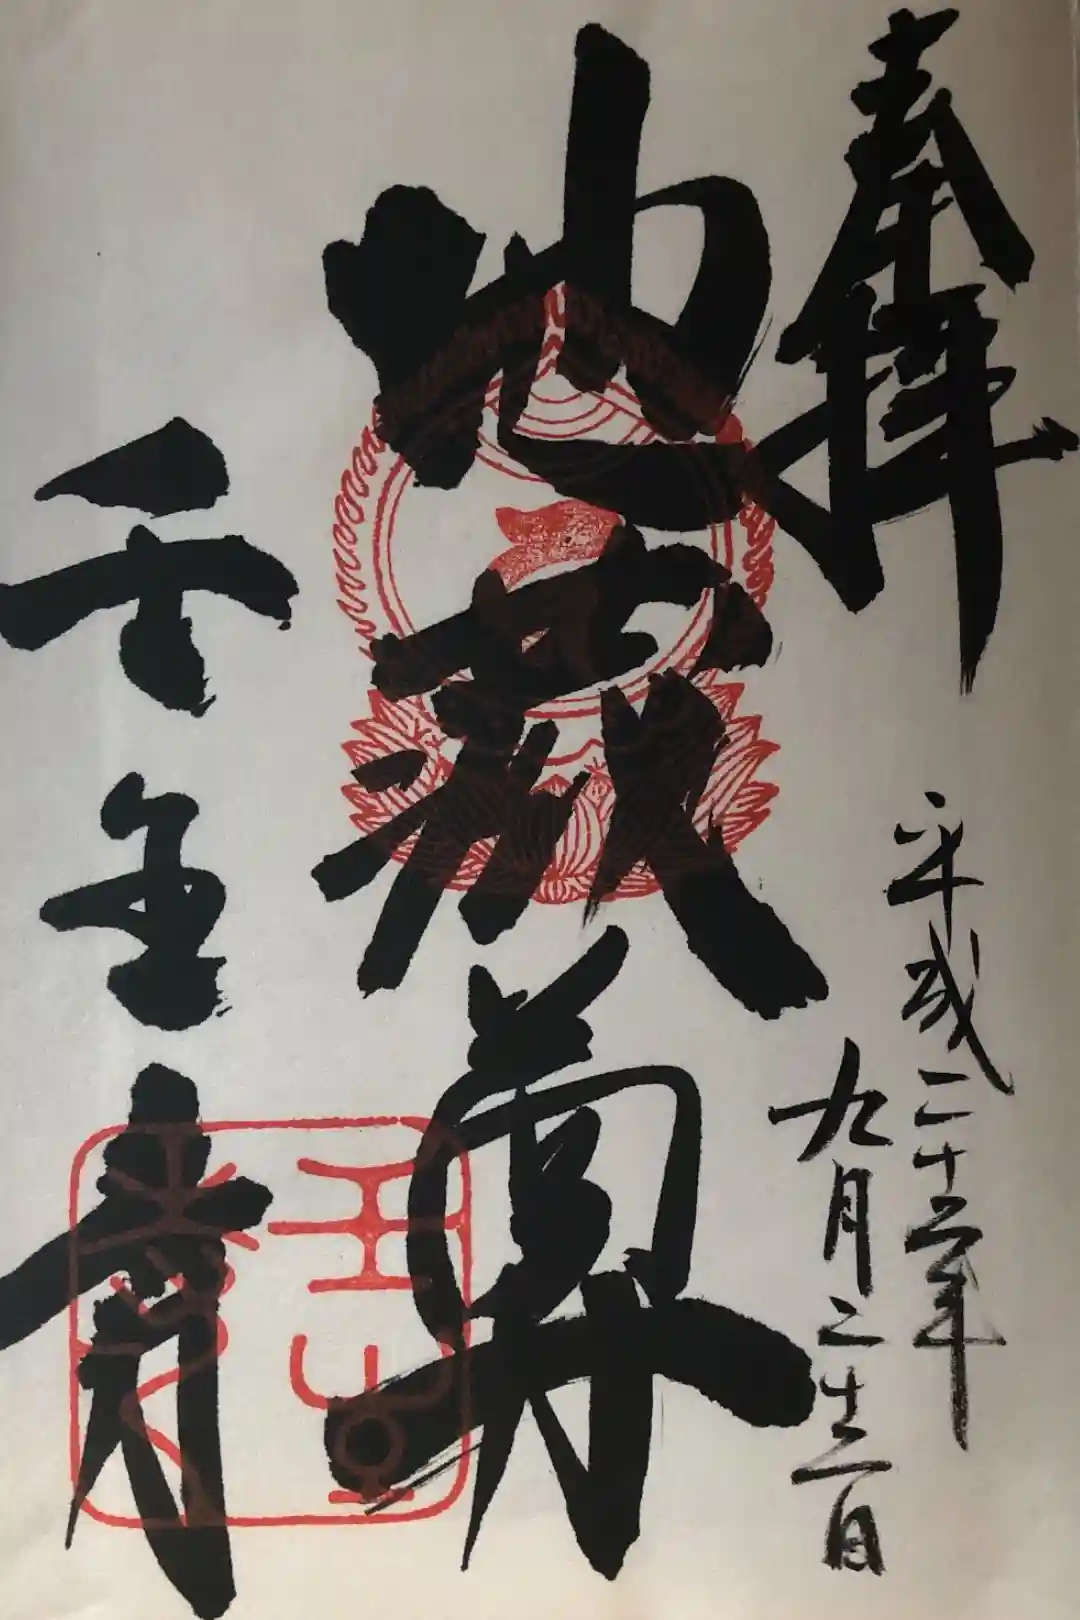 奉拝
平成二十六年
九月二十二日
地蔵尊
壬生寺